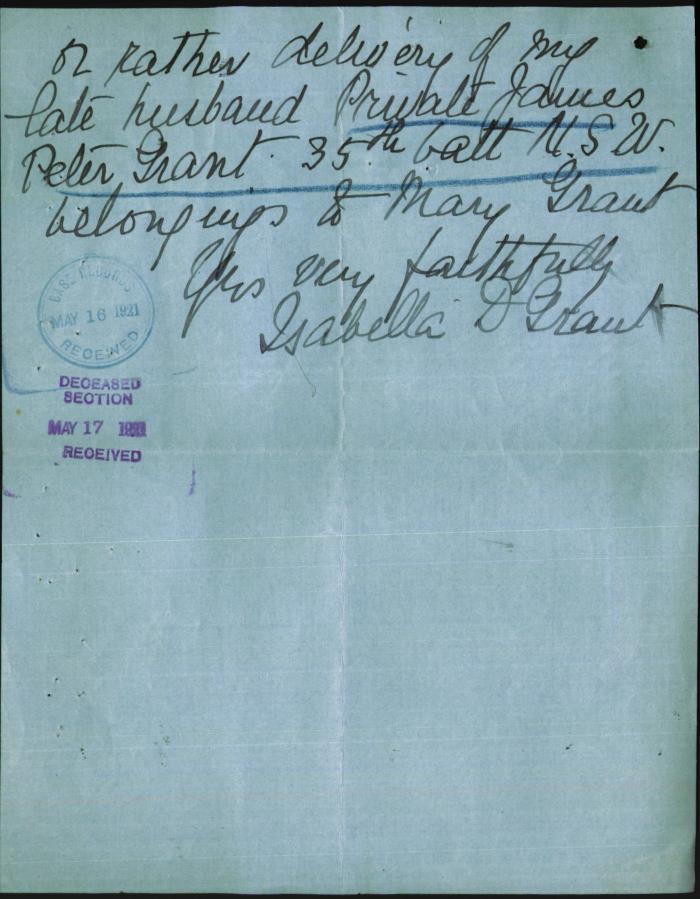 or rather delivery of my
late husband Private James
Peter Grant. 35th batt N.S.W.
belongings to Mary Grant
Yrs very faithfully
Isabella D Grant
BASE RECORDS
MAY 16 1921
RECEIVED
DECEASED
SECTION
MAY 17 1921
RECEIVED